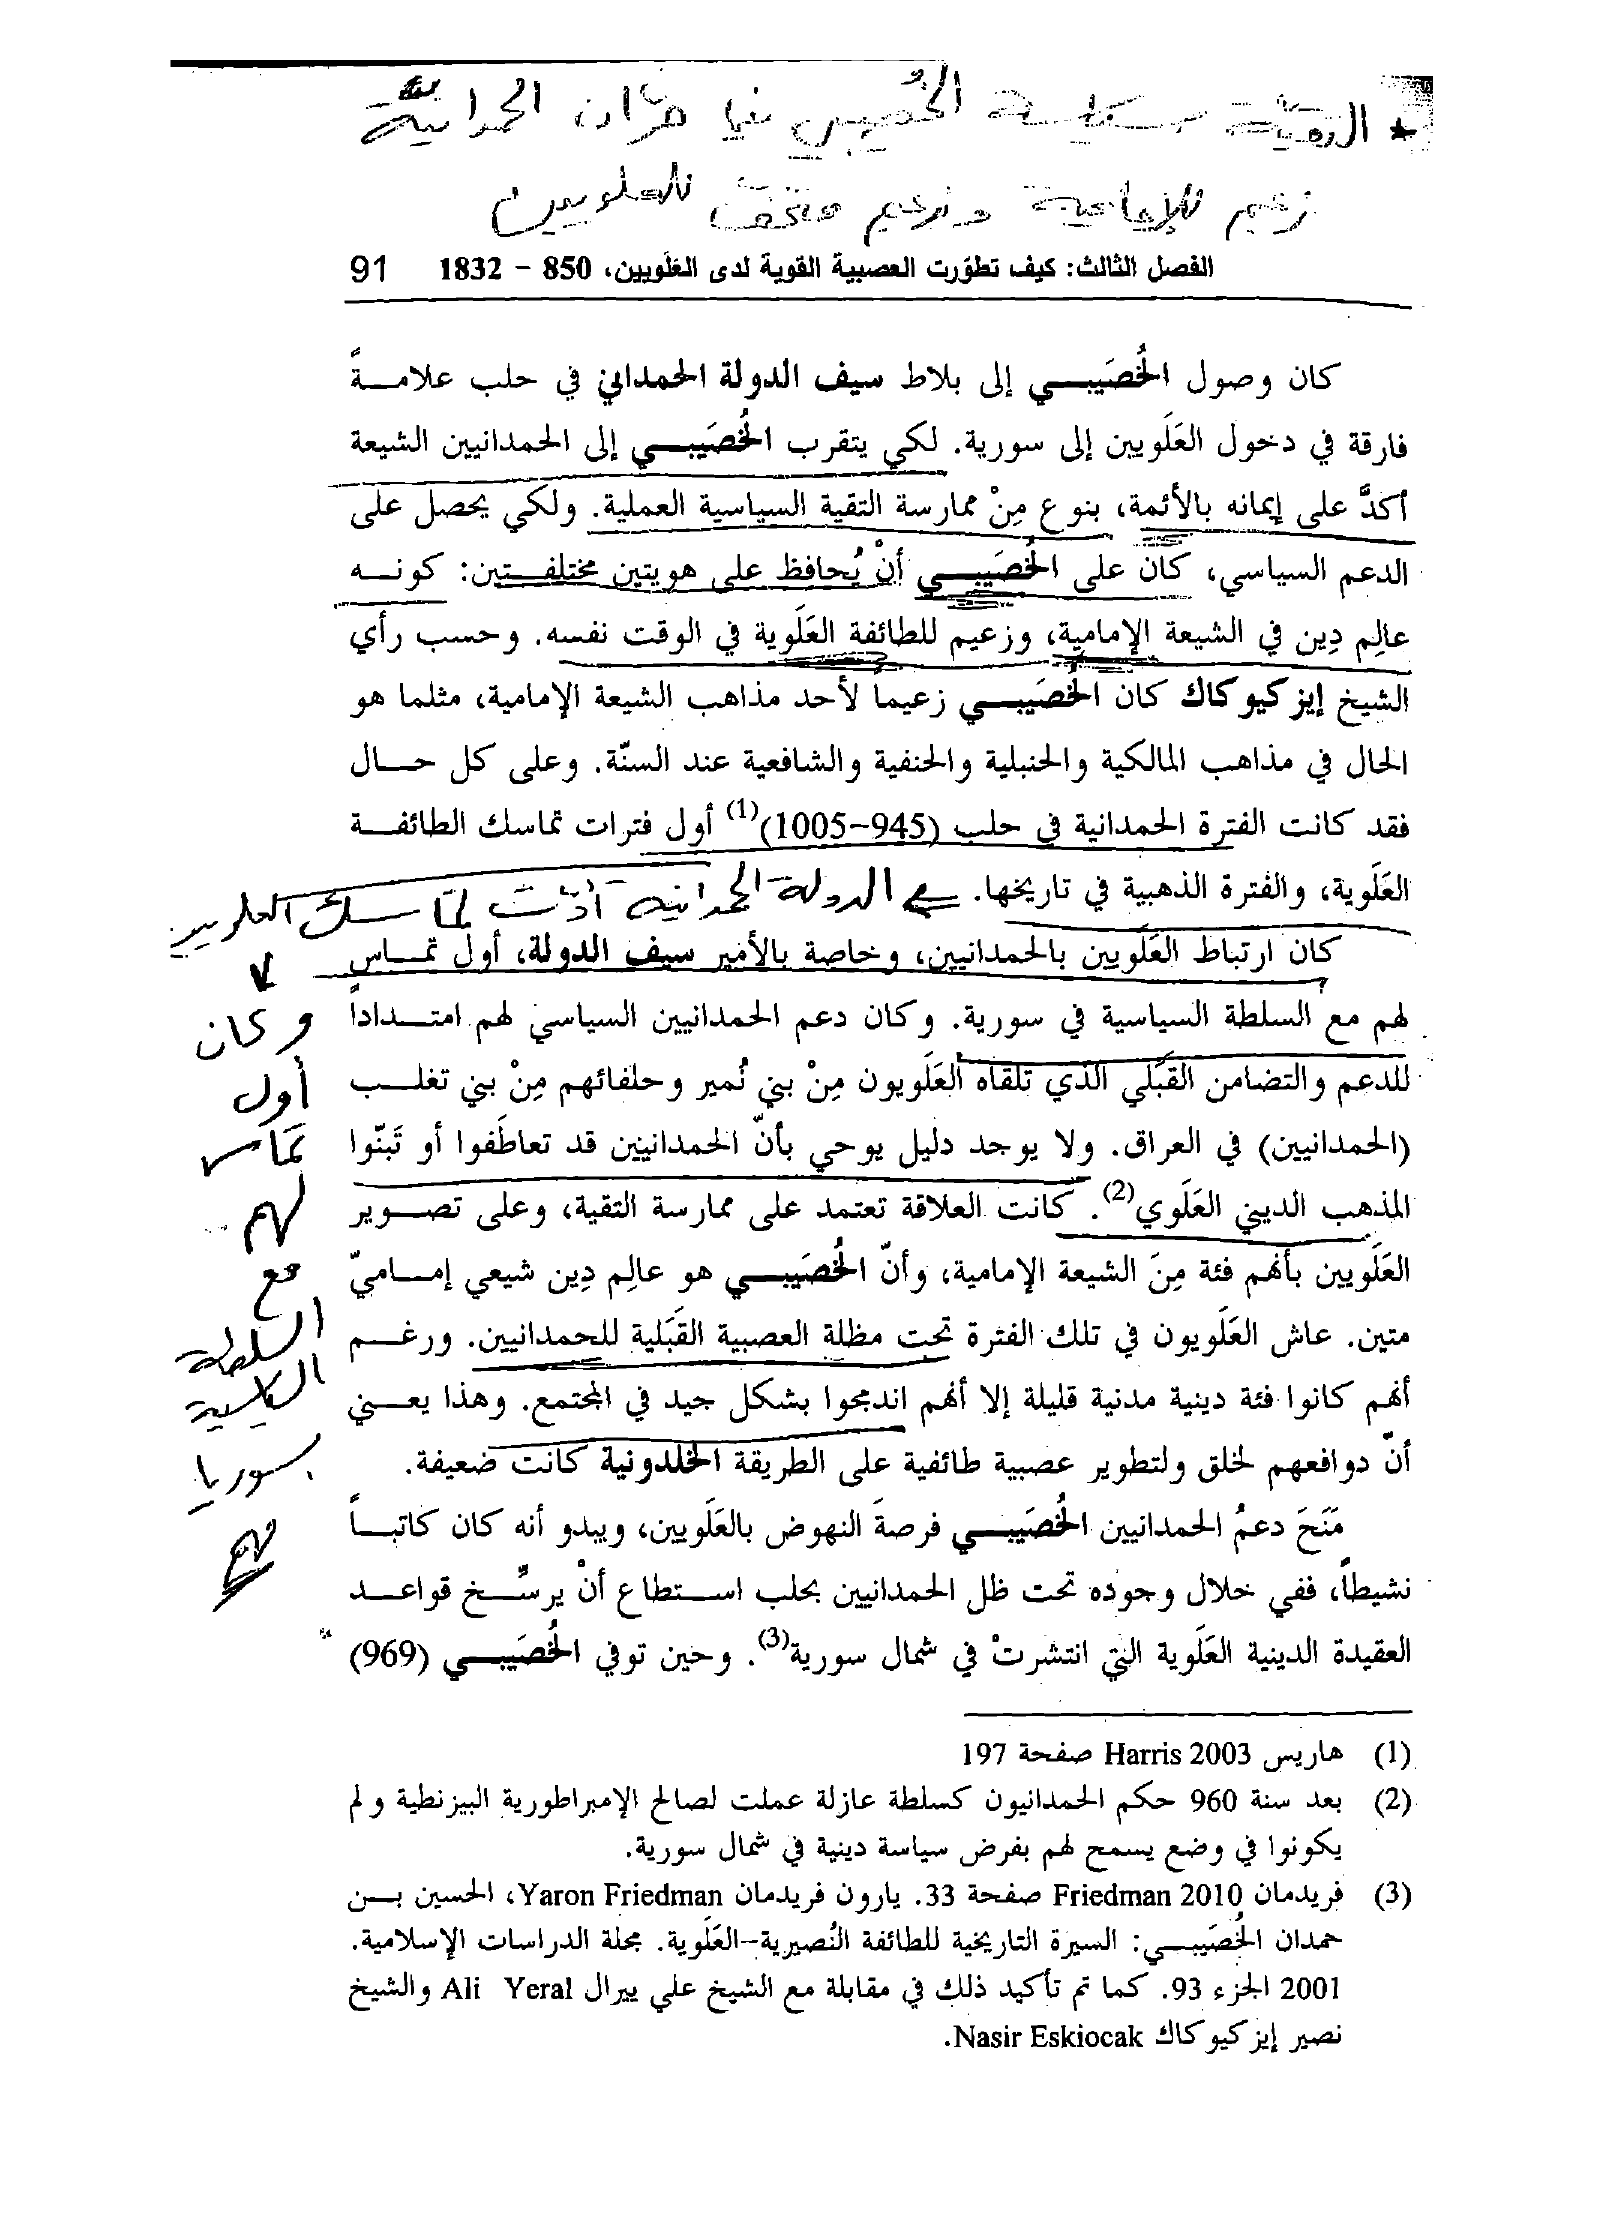 الخُصيبي الحمدانية
زعيم للإمامية وزعيم للعلويين
الفصل الثالث: كيف تطوّرت العصبية القوية لدى العَلَويين، 850 – 1832 91
كان وصول الخُصَيبـــي إلى بلاط سيف الدولة الحمداني في حلب علامـــةً
فارقة في دخول العَلَويين إلى سورية. لكي يتقرب الخُصَيبـــي إلى الحمدانيين الشيعة
أكدَّ على إيمانه بالأئمة، بنوع مِنْ ممارسة التقية السياسية العملية. ولكي يحصل على
الدعم السياسي، كان على الخُصَيبـــي أنْ يُحافظ على هويتين مختلفـــتين: كونـــه
عالِم دِين في الشيعة الإمامية، وزعيم للطائفة العَلَوية في الوقت نفسه. وحسب رأي
الشيخ إيزكيوكاك كان الخُصَيبـــي زعيماً لأحد مذاهب الشيعة الإمامية، مثلما هو
الحال في مذاهب المالكية والحنبلية والحنفية والشافعية عند السنّة. وعلى كل حـــال
فقد كانت الفترة الحمدانية في حلب (945–1005)(1) أول فترات تماسك الطائفـــة
العَلَوية، والفترة الذهبية في تاريخها. الدولة الحمدانية أدّت لتماسك العلويين
كان ارتباط العَلَويين بالحمدانيين، وخاصة بالأمير سيف الدولة، أول تمـــاس
لهم مع السلطة السياسية في سورية. وكان دعم الحمدانيين السياسي لهم امتـــداداً
للدعم والتضامن القَبَلي الذي تلقاه العَلَويون مِنْ بني نُمير وحلفائهم مِنْ بني تغلـــب
(الحمدانيين) في العراق. ولا يوجد دليل يوحي بأنّ الحمدانيين قد تعاطَفوا أو تَبنّوا
المذهب الديني العَلَوي(2). كانت العلاقة تعتمد على ممارسة التقية، وعلى تصـــوير
العَلَويين بأنهم فئة مِنَ الشيعة الإمامية، وأنّ الخُصَيبـــي هو عالِم دِين شيعي إمـــاميّ
متين. عاش العَلَويون في تلك الفترة تحت مظلة العصبية القَبَلية للحمدانيين. ورغـــم
أنهم كانوا فئة دينية مدنية قليلة إلا أنهم اندمجوا بشكل جيد في المجتمع. وهذا يعـــني
أنّ دوافعهم لخلق ولتطوير عصبية طائفية على الطريقة الخلدونية كانت ضعيفة.
مَنَحَ دعمُ الحمدانيين الخُصَيبـــي فرصةَ النهوض بالعَلَويين، ويبدو أنه كان كاتبـــاً
نشيطاً، ففي خلال وجوده تحت ظل الحمدانيين بحلب اســـتطاع أنْ يرسّـــخ قواعـــد
العقيدة الدينية العَلَوية التي انتشرتْ في شمال سورية(3). وحين توفي الخُصَيبـــي (969)
وكان
أول
تماس
لهم
مع
السلطة
السياسية
بسوريا
(1) هاريس Harris 2003 صفحة 197
(2) بعد سنة 960 حكم الحمدانيون كسلطة عازلة عملت لصالح الإمبراطورية البيزنطية ولم
يكونوا في وضع يسمح لهم بفرض سياسة دينية في شمال سورية.
(3) فريدمان Friedman 2010 صفحة 33. يارون فريدمان Yaron Friedman، الحسين بـــن
حمدان الخُصَيبـــي: السيرة التاريخية للطائفة النُصيرية–العَلَوية. مجلة الدراسات الإسلامية.
2001 الجزء 93. كما تم تأكيد ذلك في مقابلة مع الشيخ علي ييرال Ali Yeral والشيخ
نصير إيزكيوكاك Nasir Eskiocak.